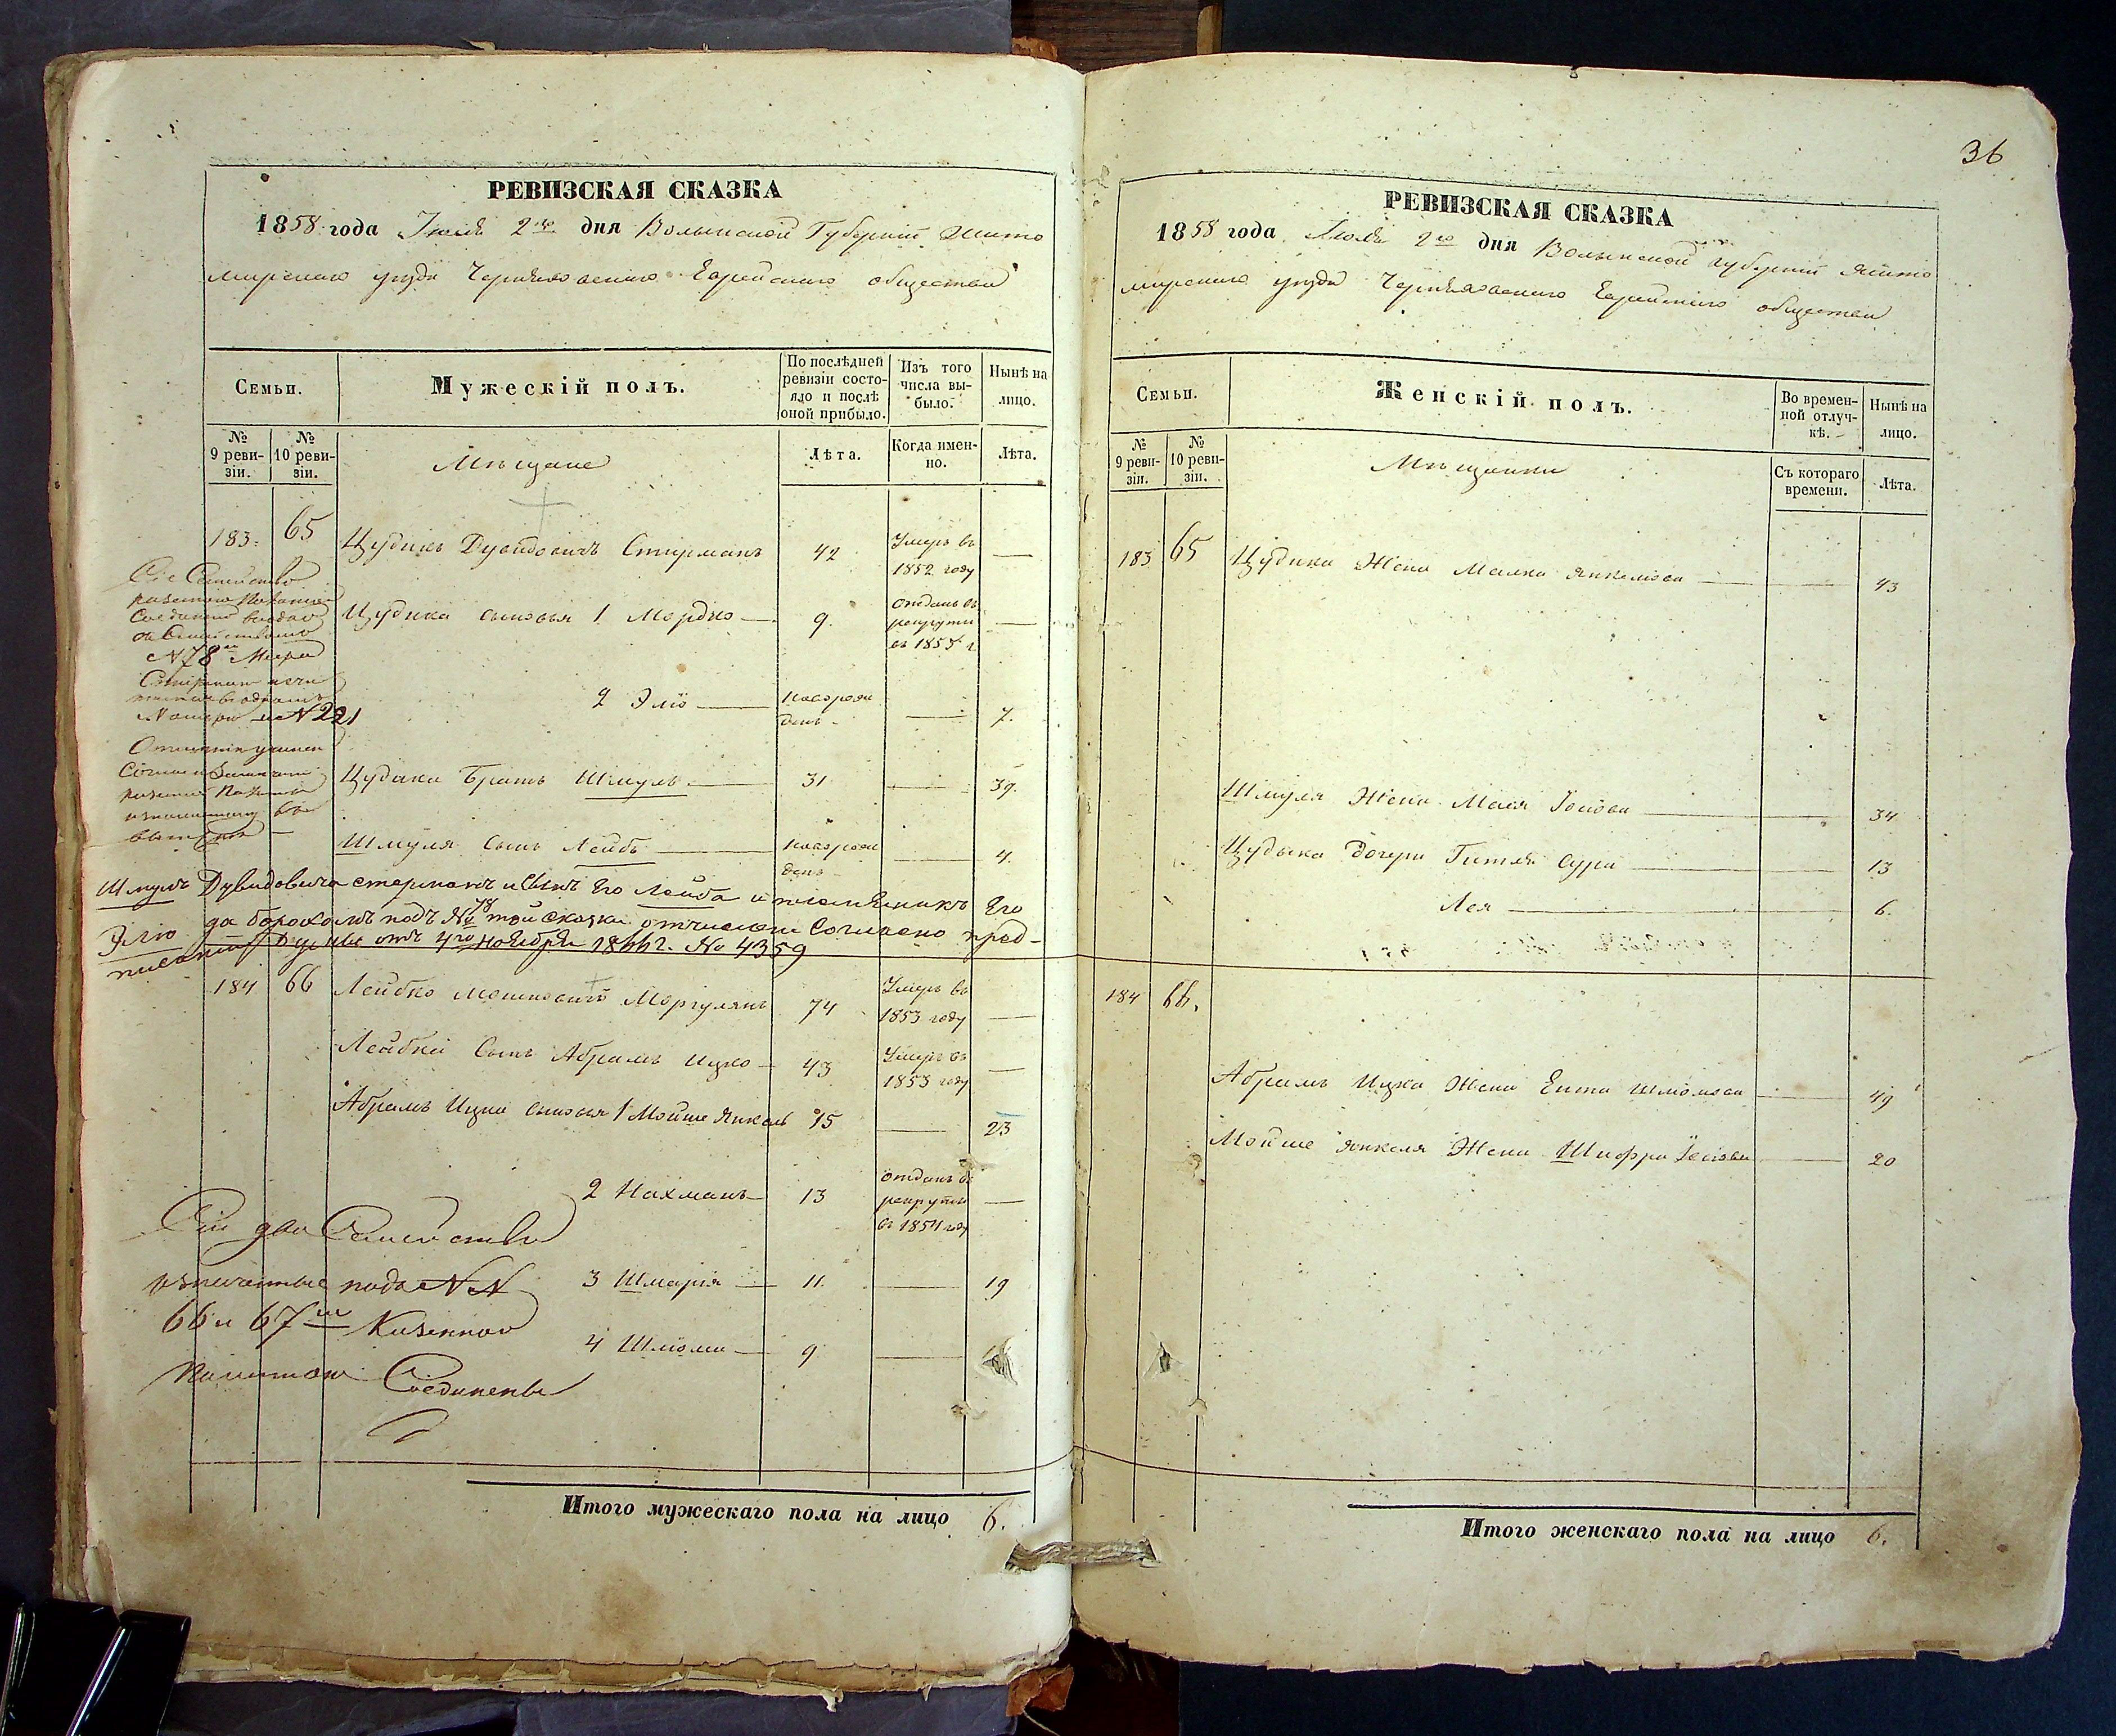 РЕВИЗСКАЯ СКАЗКА
1858 года Июня 2го дня Волынской Губернии Жито
мирскаго уезда Черняховскаго Еврейскаго общества
Семьи.
Мужескій полъ.
По послѣдней ревизіи состояло и послѣ оной прибыло.
Изъ того числа выбыло.
Нынѣ на лицо.
№ 9 ревизіи.
№ 10 ревизіи.
Мѣщане
Лѣта.
Когда именно.
Лѣта.
183. 65 Цудикъ Дувидовичъ Стирманъ 42 Умеръ въ 1852 году —
Цудика сыновья 1 Мордко — 9. отданъ въ рекруты въ 1855 г —
2 Элiо — новорожденъ — 7.
Цудика Братъ Шмуль — 31 — 39.
Шмуля Сынъ Лейбъ — новорожденъ — 4.
Сіе Семейство
казенною Палатою
Соединено
съ Семействомъ
№ 78
№ 221
Шмуль Дувидовичъ стерманъ и Сынъ Его Лейба и племянникъ Его
Элiо подъ № 78 той сказки отчислены Согласно пред-
писанія Думы отъ 4го Ноября 1866 г. № 4359
184 66 Лейбко Мошковичъ Моргулянъ 74 Умеръ въ 1853 году —
Лейбки Сынъ Абрамъ Ицко — 43 Умеръ въ 1853 году —
Абрамъ Ицки сыновья 1 Мойше Янкель 15 — 23
2 Нахманъ — 13 отданъ въ рекруты въ 1854 году —
3 Шмарія — 11. — 19
4 Шліома — 9 —
Сіи два Семейства
подъ №№
66 и 67 Казенною
Палатою Соединены
Итого мужескаго пола на лицо 6.
36
РЕВИЗСКАЯ СКАЗКА
1858 года Июня 2го дня Волынской губерніи Жито
мирскаго уезда Черняховскаго Еврейскаго общества
Семьи.
Женскій полъ.
Во временной отлучкѣ.
Нынѣ на лицо.
№ 9 ревизіи.
№ 10 ревизіи.
Мѣщанки
Съ котораго времени.
Лѣта.
183 65 Цудика Жена Малка Янкелова — 43
Шмуля Жена Мася Іосіова — 34
Цудыка дочери Гитля Сура — 13
Лея — 6.
184 66.
Абрамъ Ицка Жена Ента Шліомова — 49
Мойше Янкеля Жена Шифра Іосіова — 20
Итого женскаго пола на лицо 6.